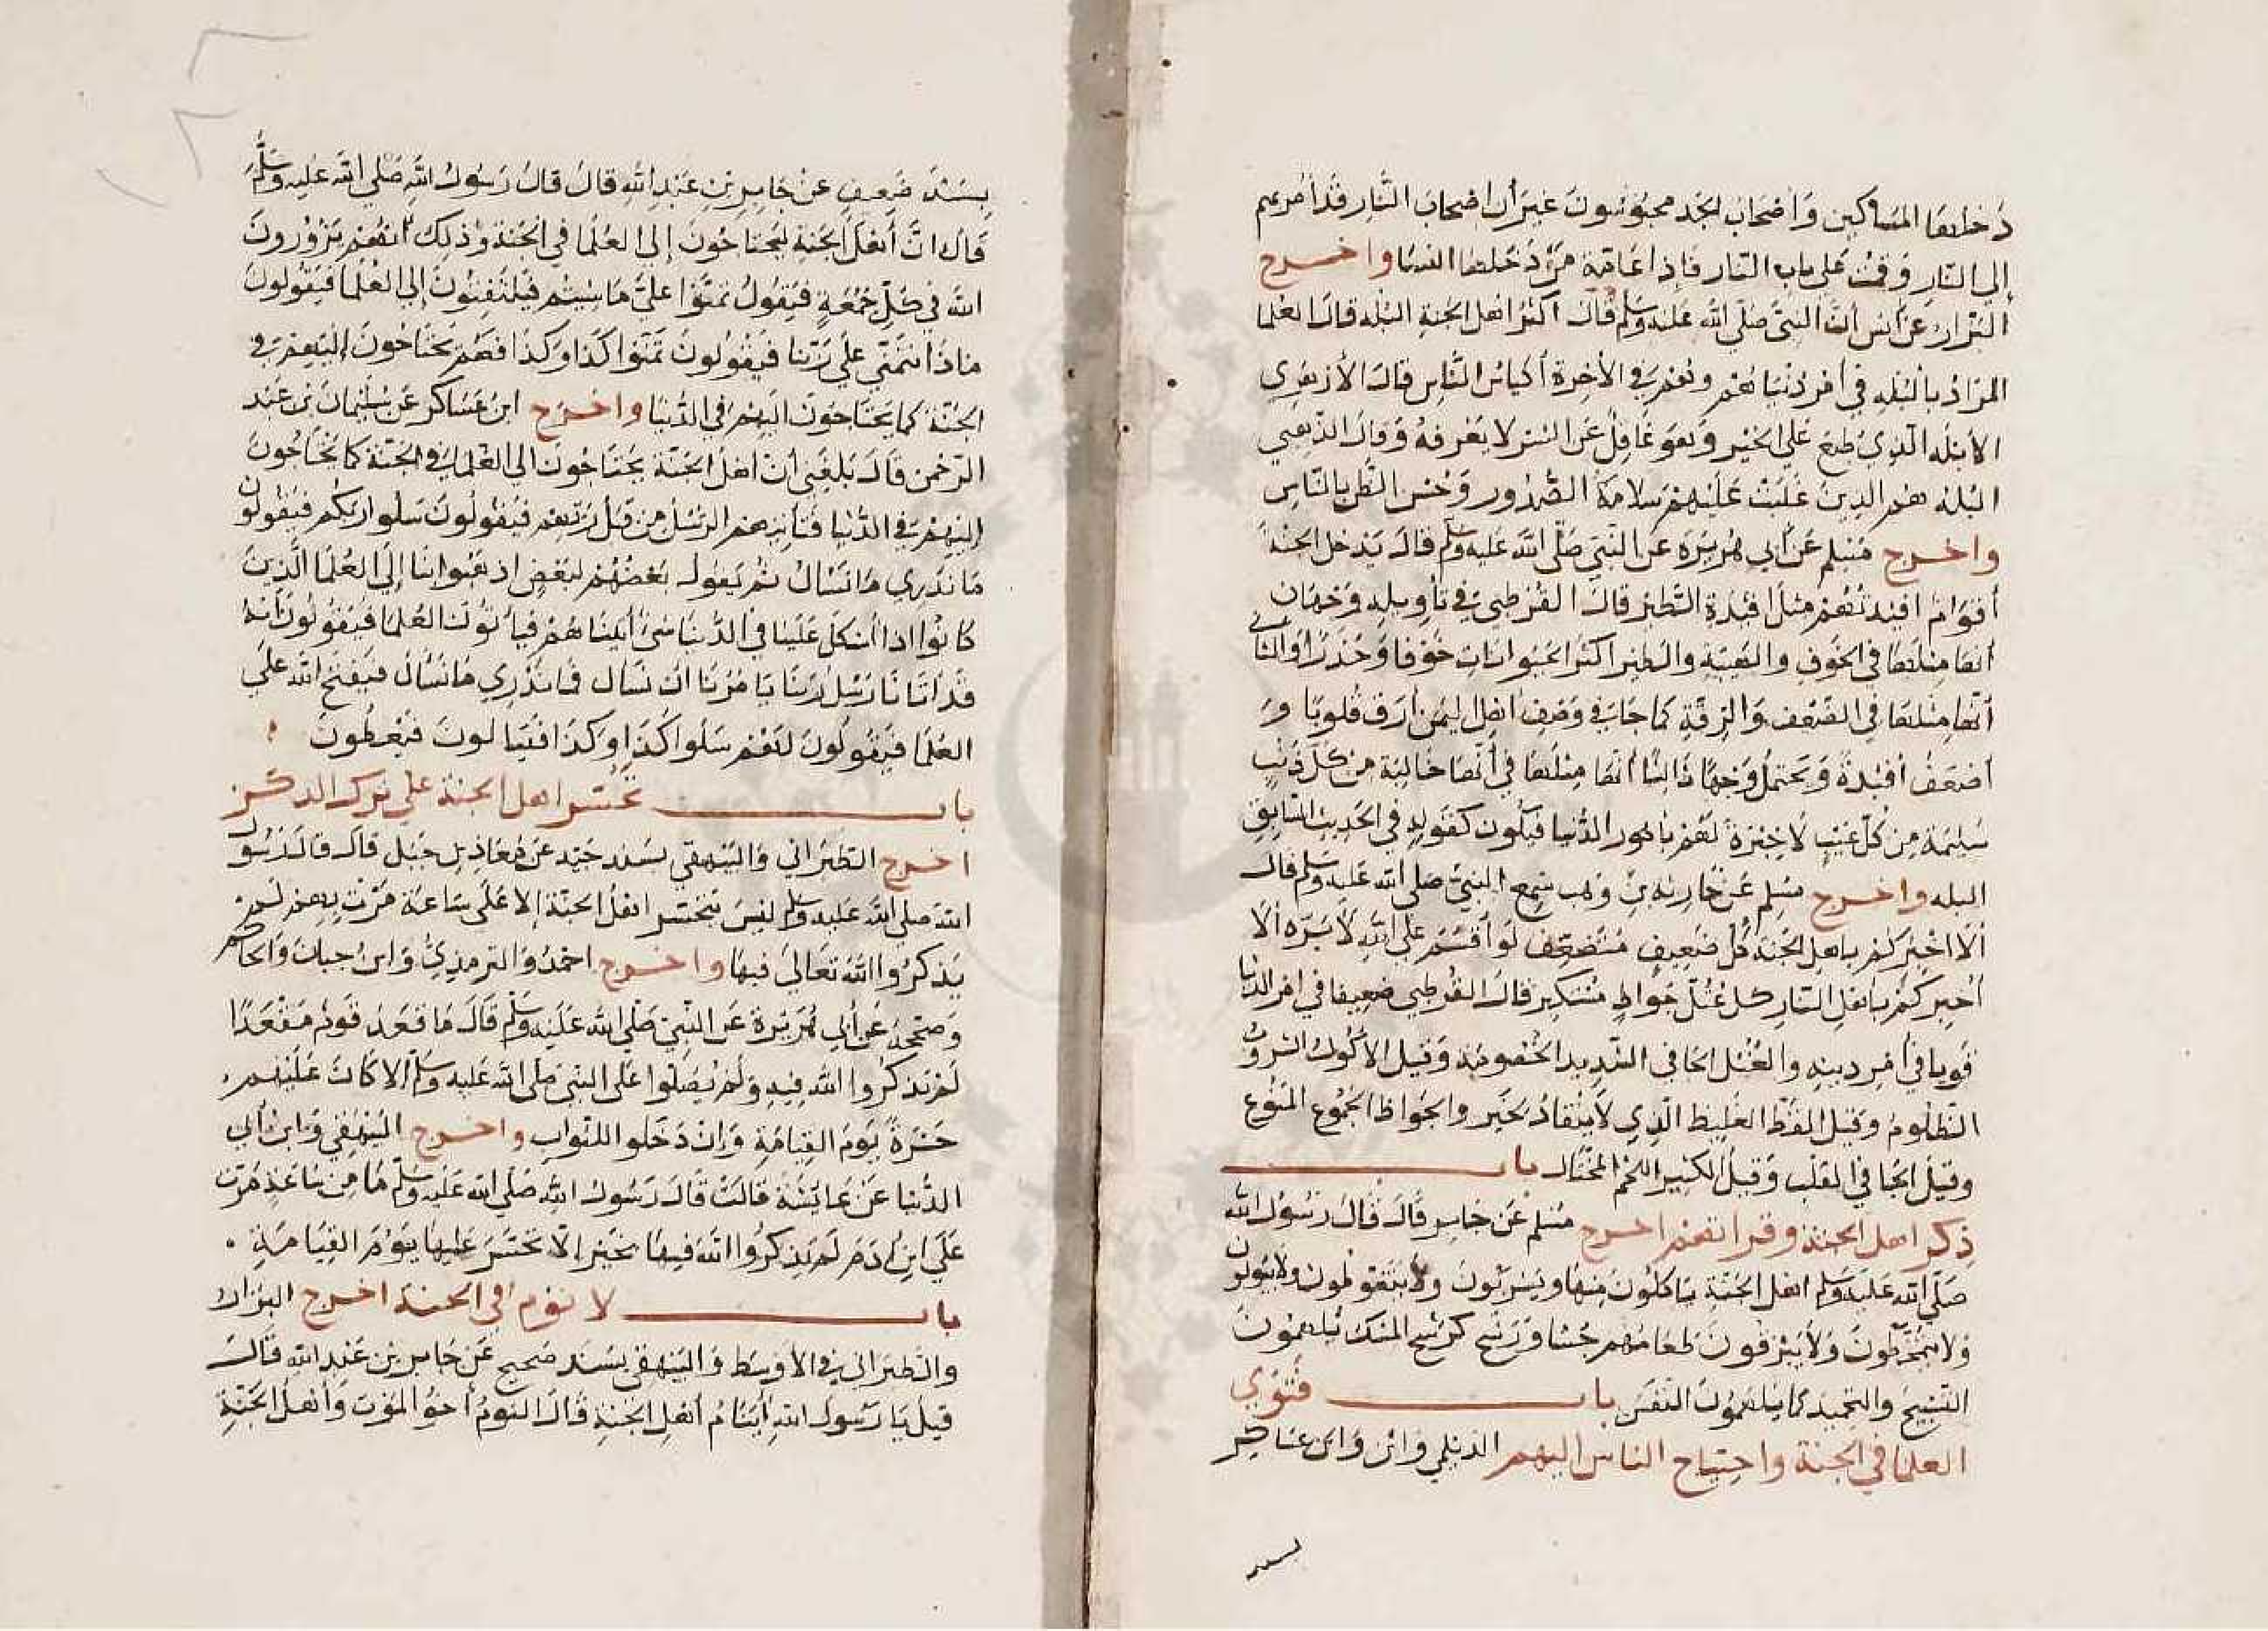 دخلها المساكين وَاصْحاب الجد محبوسُونَ غيرَ أن اصْحابَ النَّار قد أمر بهم
إلي النّارِ وَقمتُ عَلى باب النّار فَاِذا عَامّة مَنْ دَخَلهَا النسَا واخـــرج
البَزار عن أنس أنَّ النَّبيّ صَلّي الله عَليه وسَلم قالَ أكثر اهْل الجنةِ البُله قالَ العُلمَا
المرَادُ بالبُلهِ في أمر دُنيَاهُم وَهُم في الأخِرة أكيَاسُ النَّاسِ قالَ الأزهَرِي
الأبْله الّذِي طبعَ عَلي الخَير وَهوَ غَافِلٌ عَن الشر لا يَعْرفهُ وَقالَ الذّهبي
البُله هُم الذِينَ غَلَبَت عَليْهِم سَلامة الصُّدُور وَحُسْن الظّن بالنَّاسِ
واخـرج مُسْلم عَن أبي هُرَيرَة عَن النّبي صَلّى الله عَليه وسَلم قالَ يَدخل الجنة
أقوَامٌ افيدتُهُمْ مثل افيدة الطّير قالَ القُرطبي في تأويله وَجهَان
أنهَا مثلهَا في الخَوفِ والهَيبَة والطير اكثر الحَيَوانَاتِ خَوْفًا وَحَذرًا والثَّاني
أنّها مثلهَا في الضّعْف وَالرقّةِ كما جَا في وَصْفِ اهْل اليَمن أرَق قلوبًا وَ
اضعَفُ أفيدة وَيَحتملُ وَجهًا ثالثًا أنهَا مثلهَا في أنّها خَالِيَة مِن كل ذَنْبٍ
سَليمَة مِن كلّ عَيْبٍ لا خِبرَة لَهُم بامُور الدُّنيا فيَكُون كقَولهِ في الحَدِيث السَّابقِ
البله واخـرج مُسْلم عَن حَارثة بن وَهب سَمِع النبيّ صَلي الله عَليه وسَلم قالَ
ألَا اخبركُم باهل الجنة كُل ضَعِيفٍ مُتَضَعِّفٍ لوْ أقسَمَ عَلى اللهِ لَأبَرّه ألَا
أخبركمُ بأهْلِ النّار كل عُتُلّ جَواظٍ مُستَكبر قالَ القُرطبي ضعِيفا في امر الدّنيا
قَويا في أمر دينهِ والعُتُل الجَافي الشَّدِيد الخصُومَة وَقيل الأكُولُ الشرُوبُ
الظلُومُ وَقيل الفَظ الغليظ الّذِي لا يَنقادُ لخَير والجَواظ الجَمُوع المَنُوع
وقيل الجَافي القَلب وَقيل الكثِير اللّحم المُختَال بَابــــــــ
ذِكر اهل الجنة وقراتهم اخـرج مُسْلم عَن جَابر قالَ قالَ رَسُول الله
صَلّي الله عَليه وسَلم اهْل الجَنّةِ يَاكلُونَ مِنهَا ويَشربُونَ ولَا يَتغَوطُونَ ولَا يَبُولُونَ
وَلا يَتمخطُونَ وَلا يَبْزقونَ طَعَامُهم جشَا وَرَشح كرَشح المسْك يُلهَمُونَ
التسْبيحَ والتحْميدَ كما يُلهَمُونَ النفسَ بَابــــــــ فَتوي
العلما في الجنة واحتِيَاج الناس اليهم الدّيلمي وَابن وَابن عَسَاكِر
بسند
بِسَنَد ضَعِيفٍ عَنْ جَابِر بْن عَبْدِ اللهِ قالَ قالَ رَسُولُ اللهِ صَلي الله عَليه وسَلم
قالَ انَّ أهْل الجَنةِ ليَحْتَاجُونَ إلي العُلمَا في الجَنّة وَذَلِكَ انهُمْ يَزُورُونَ
اللهَ في كُلّ جُمُعَةٍ فَيَقُولُ تمنّوْا عَليّ مَا شِيتُم فَيَلتَفِتُونَ إلي العُلمَا فَيَقُولُونَ
مَاذَا نتَمَنّي عَلَي رَبّنَا فَيَقُولُونَ تمَنّوْا كَذا وَكذا فَهُمْ يَحتَاجُونَ إليْهِمْ في
الجَنّة كمَا يَحتَاجُونَ اليْهِمْ في الدُّنيا واخـرج ابن عَسَاكر عَن سُليمَانَ بْن عَبْد
الرّحمن قالَ بَلغَنِي أنْ اهْلَ الجَنّة يَحتَاجُونَ الي العُلمَا في الجَنّة كما يَحْتَاجُونَ
إليْهِمْ في الدُّنْيا فَتَأتِيهم الرسُلُ مِن قبَل رَبّهِم فَيَقُولُونَ سَلُوا رَبكم فيَقُولُونَ
مَا نَدْرِي مَا نَسْأل ثُم يَقُول بَعْضُهُمْ لبَعْضٍ اذهَبُوا بِنَا إلَي العُلمَا الّذينَ
كَانُوا اذا أشكل عَلَينا في الدُّنيَا شَئ أتَينَاهُمْ فيَأتُونَ العُلمَا فيَقُولُونَ إنّهُ
قدْ أتَانَا رسُل رَبنَا يَامُرُنَا انْ نَسْأل فَمَا نَدْرِي مَا نَسْأل فيَفتَح الله عَلَي
العُلمَا فَيَقُولُونَ لَهُم سَلُوا كذَا وَكذَا فَيَسَالونَ فيُعْطَونَ
بابــــــــ تحَسّر اهل الجنة علي ترك الذكر
اخـرج الطّبَرَاني وَالبَيهَقي بسَند جَيّد عَن مُعَاذ بن جَبَل قالَ قالَ رَسُول
الله صَلي الله عَليه وسَلم ليسَ يتحَسّر اهْلُ الجَنّة إلا عَلَى سَاعَةٍ مَرّتْ بِهِم لَم
يَذكرُوا اللهَ تعَاليَ فيهَا واخـرج احمَدُ وَالترمذِيُّ وَابنُ حبانَ وَالحَاكم
وَصَحّحهُ عَن أبي هُرَيْرَة عَن النّبيّ صَلّي الله عَليَه وسَلم قالَ مَا قعَدَ قَومٌ مَقْعَدًا
لَم يَذكرُوا اللهَ فِيهِ وَلَم يُصَلّوا عَلَى النبيّ صَلي الله عَليه وسَلم الا كَانَ عَلَيْهِم
حَسْرَةً يَومَ القِيَامَةِ وَان دَخَلُو اللثوَابِ واخـرج البَيهَقي وَابن أبي
الدُّنيا عَنْ عَايشَة قالَتْ قَالَ رَسُولُ اللهِ صَلّي الله عَليه وسَلم مَا مِن سَاعَةٍ مَرّت
عَلَي ابنِ ادَمَ لَم يَذكرُوا اللهَ فيهَا بخَير إلّا تحَسّرَ عَليهَا يَوْمَ القِيَامَةِ
بابــــــــ لا نوم في الجنة اخرج البزار
والطبَرَاني في الأوسَط وَالبَيهقي بسَنَد صَحِيح عَن جَابر بن عَبْدِ اللهِ قالَ
قيلَ يَا رَسُول اللهِ أيَنَامُ أهْل الجَنةِ قَالَ النّومُ أخوُ المَوْت وَأهْلُ الجَنّةِ